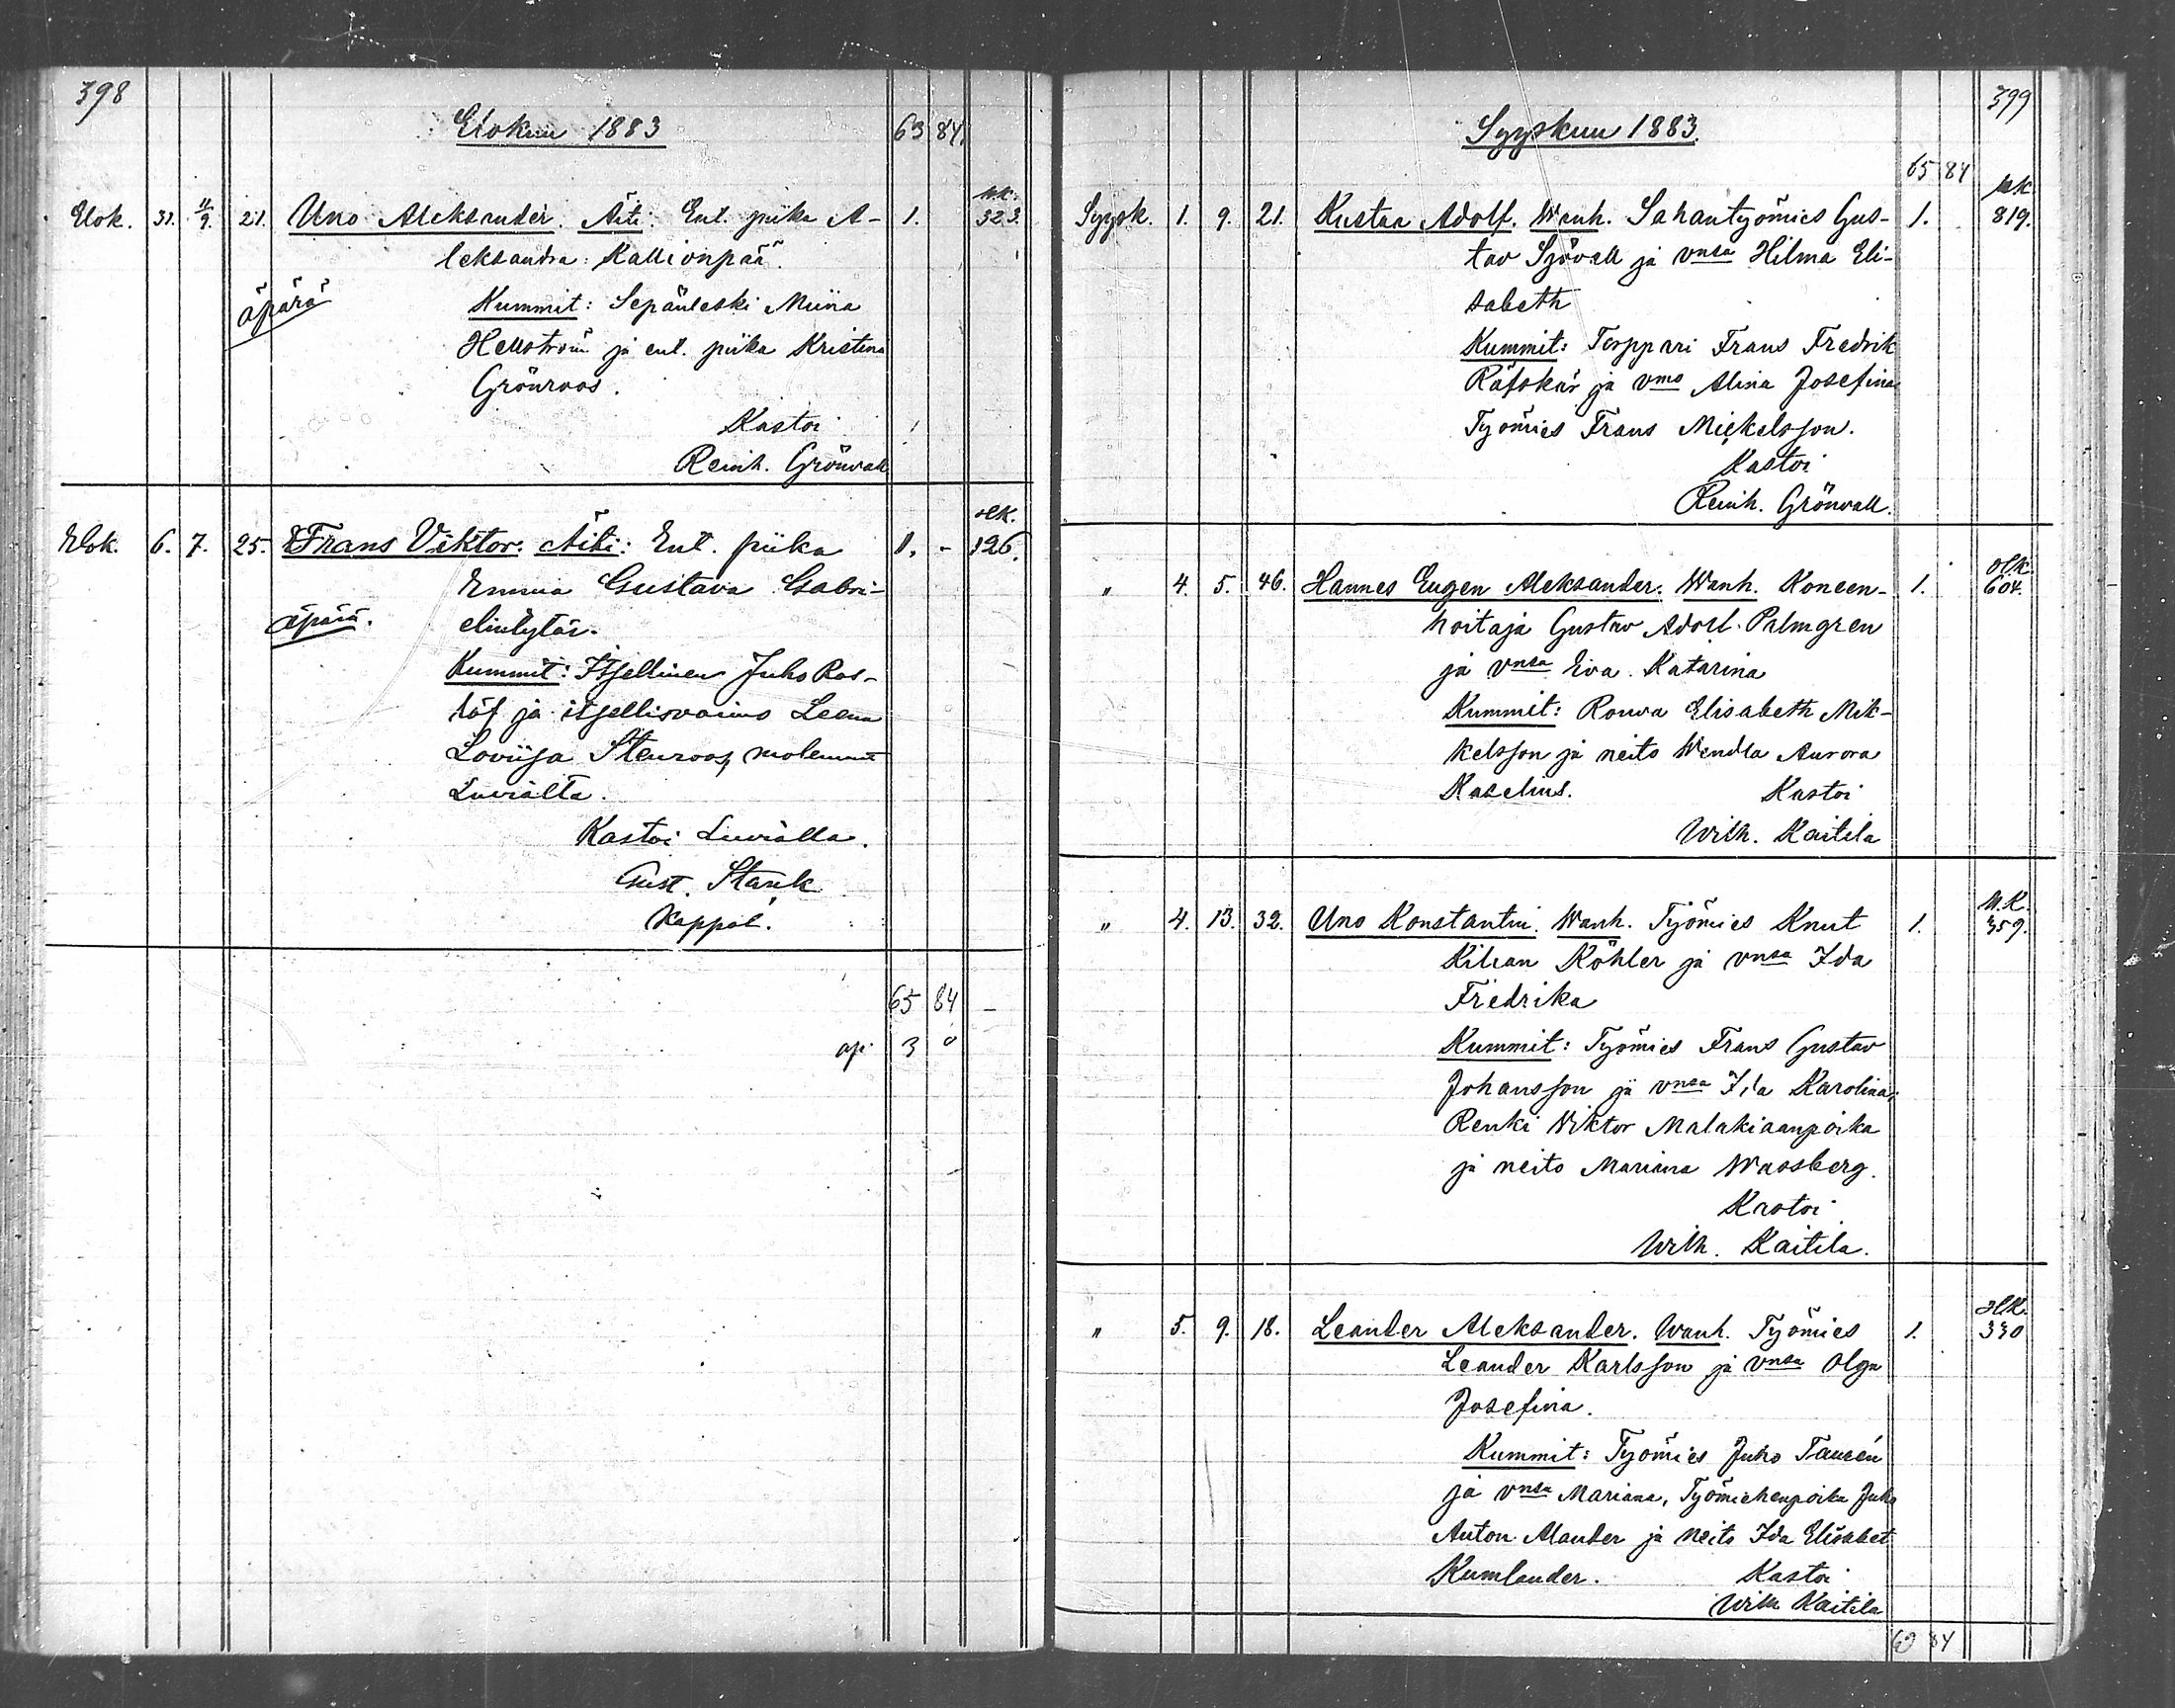 398
Elokuu 1883 63 84.
Elok. 31. 11/9. 21. Uno Aleksander. Äiti: Ent. piika A- 1. UK. 323.
leksandra Kallionpää.
äpärä Kummit: Sepänleski Miina
Hellström ja ent. piika Kristina
Grönroos.
Kastoi
Reinh. Grönvall
Elok. 6. 7. 25. Frans Viktor. Äiti: Ent. piika 1. - 126.
Emma Gustava Gabri-
äpärä. elintytär.
Kummit: Itsellinen Juho Ros-
löf ja itsellisvaimo Leena
Loviisa Stenroos, molemmat
Luvialta.
Kastoi Luvialla.
Gust. Stank
Kappal.
65 84 -
äp. 3 0
399
Syyskuu 1883.
65 84
Syysk. 1. 9. 21. Kustaa Adolf. Wanh. Sahantyömies Gus- 1. UK. 819.
tav Sjövall ja vnsa Hilma Eli-
sabeth
Kummit: Torppari Frans Fredrik
Räfskär ja vmo Alina Josefina
Työmies Frans Mickelsson.
Kastoi
Reinh. Grönvall.
" 4. 5. 46. Hannes Eugen Aleksander. Wanh. Koneen- 1. 604.
hoitaja Gustav Adolf Palmgren
ja vnsa Eva Katarina
Kummit: Rouva Elisabeth Mik-
kelsson ja neito Wendla Aurora
Kaselius. Kastoi
Wilh. Kaitila
" 4. 13. 32. Uno Konstantin. Wanh. Työmies Knut 1. U.K. 359.
Kilian Köhler ja vnsa Ida
Fredrika
Kummit: Työmies Frans Gustav
Johansson ja vnsa Ida Karolina,
Renki Viktor Malakiaanpoika
ja neito Mariana Wassberg.
Kastoi
Wilh. Kaitila.
" 5. 9. 18. Leander Aleksander. Wanh. Työmies 1. 330
Leander Karlsson ja vnsa Olga
Josefina.
Kummit: Työmies Juho Taurén
ja vnsa Mariana, Työmiehenpoika Juho
Anton Alander ja neito Ida Elisabet
Kumlander. Kastoi
Wilh Kaitila
69 84